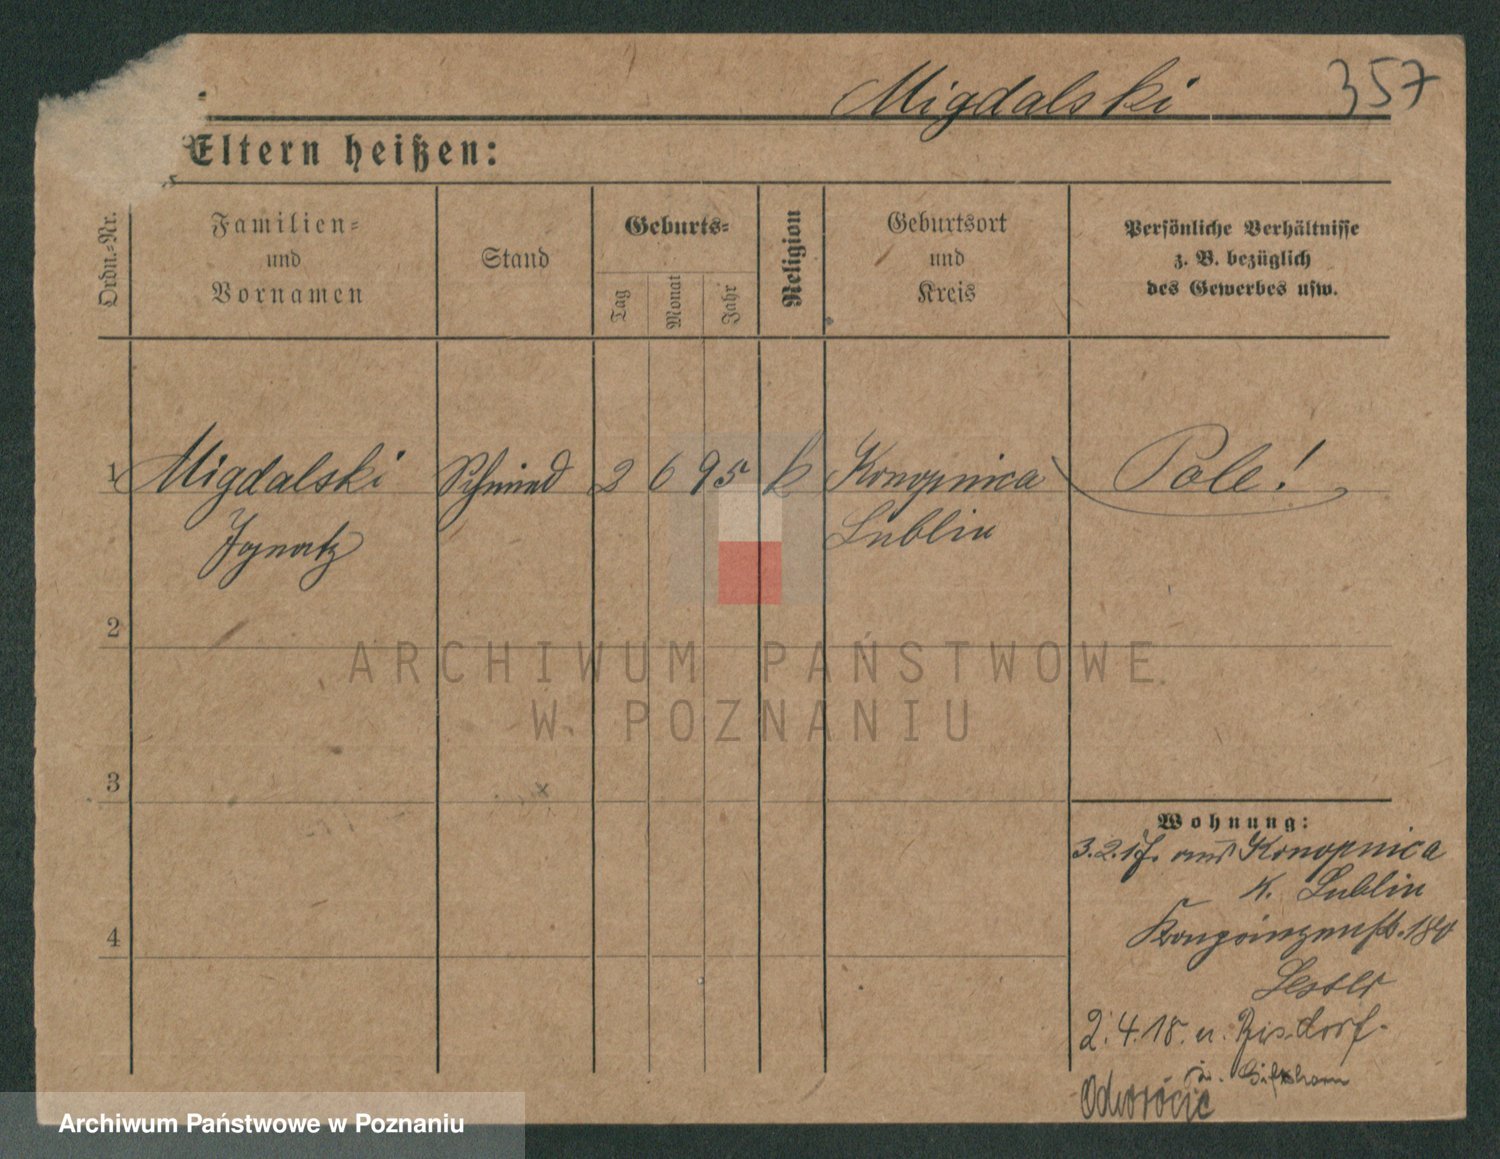 Migdalski 357
Eltern heißen:
Ordn.-Nr.
Familien-
und
Vornamen
Stand
Geburts-
Tag
Monat
Jahr
Religion
Geburtsort
und
Kreis
Persönliche Verhältnisse
z. B. bezüglich
des Gewerbes usw.
1 Migdalski Schmied 2 6 95 k Konopnica Pole!
Ignatz Lublin
2
3
4
Wohnung:
3.2.17. aus Konopnica
K. Lublin
Kronprinzenstr. 180
2.4.18. n.
Odwrócić
ARCHIWUM PAŃSTWOWE
W POZNANIU
Archiwum Państwowe w Poznaniu